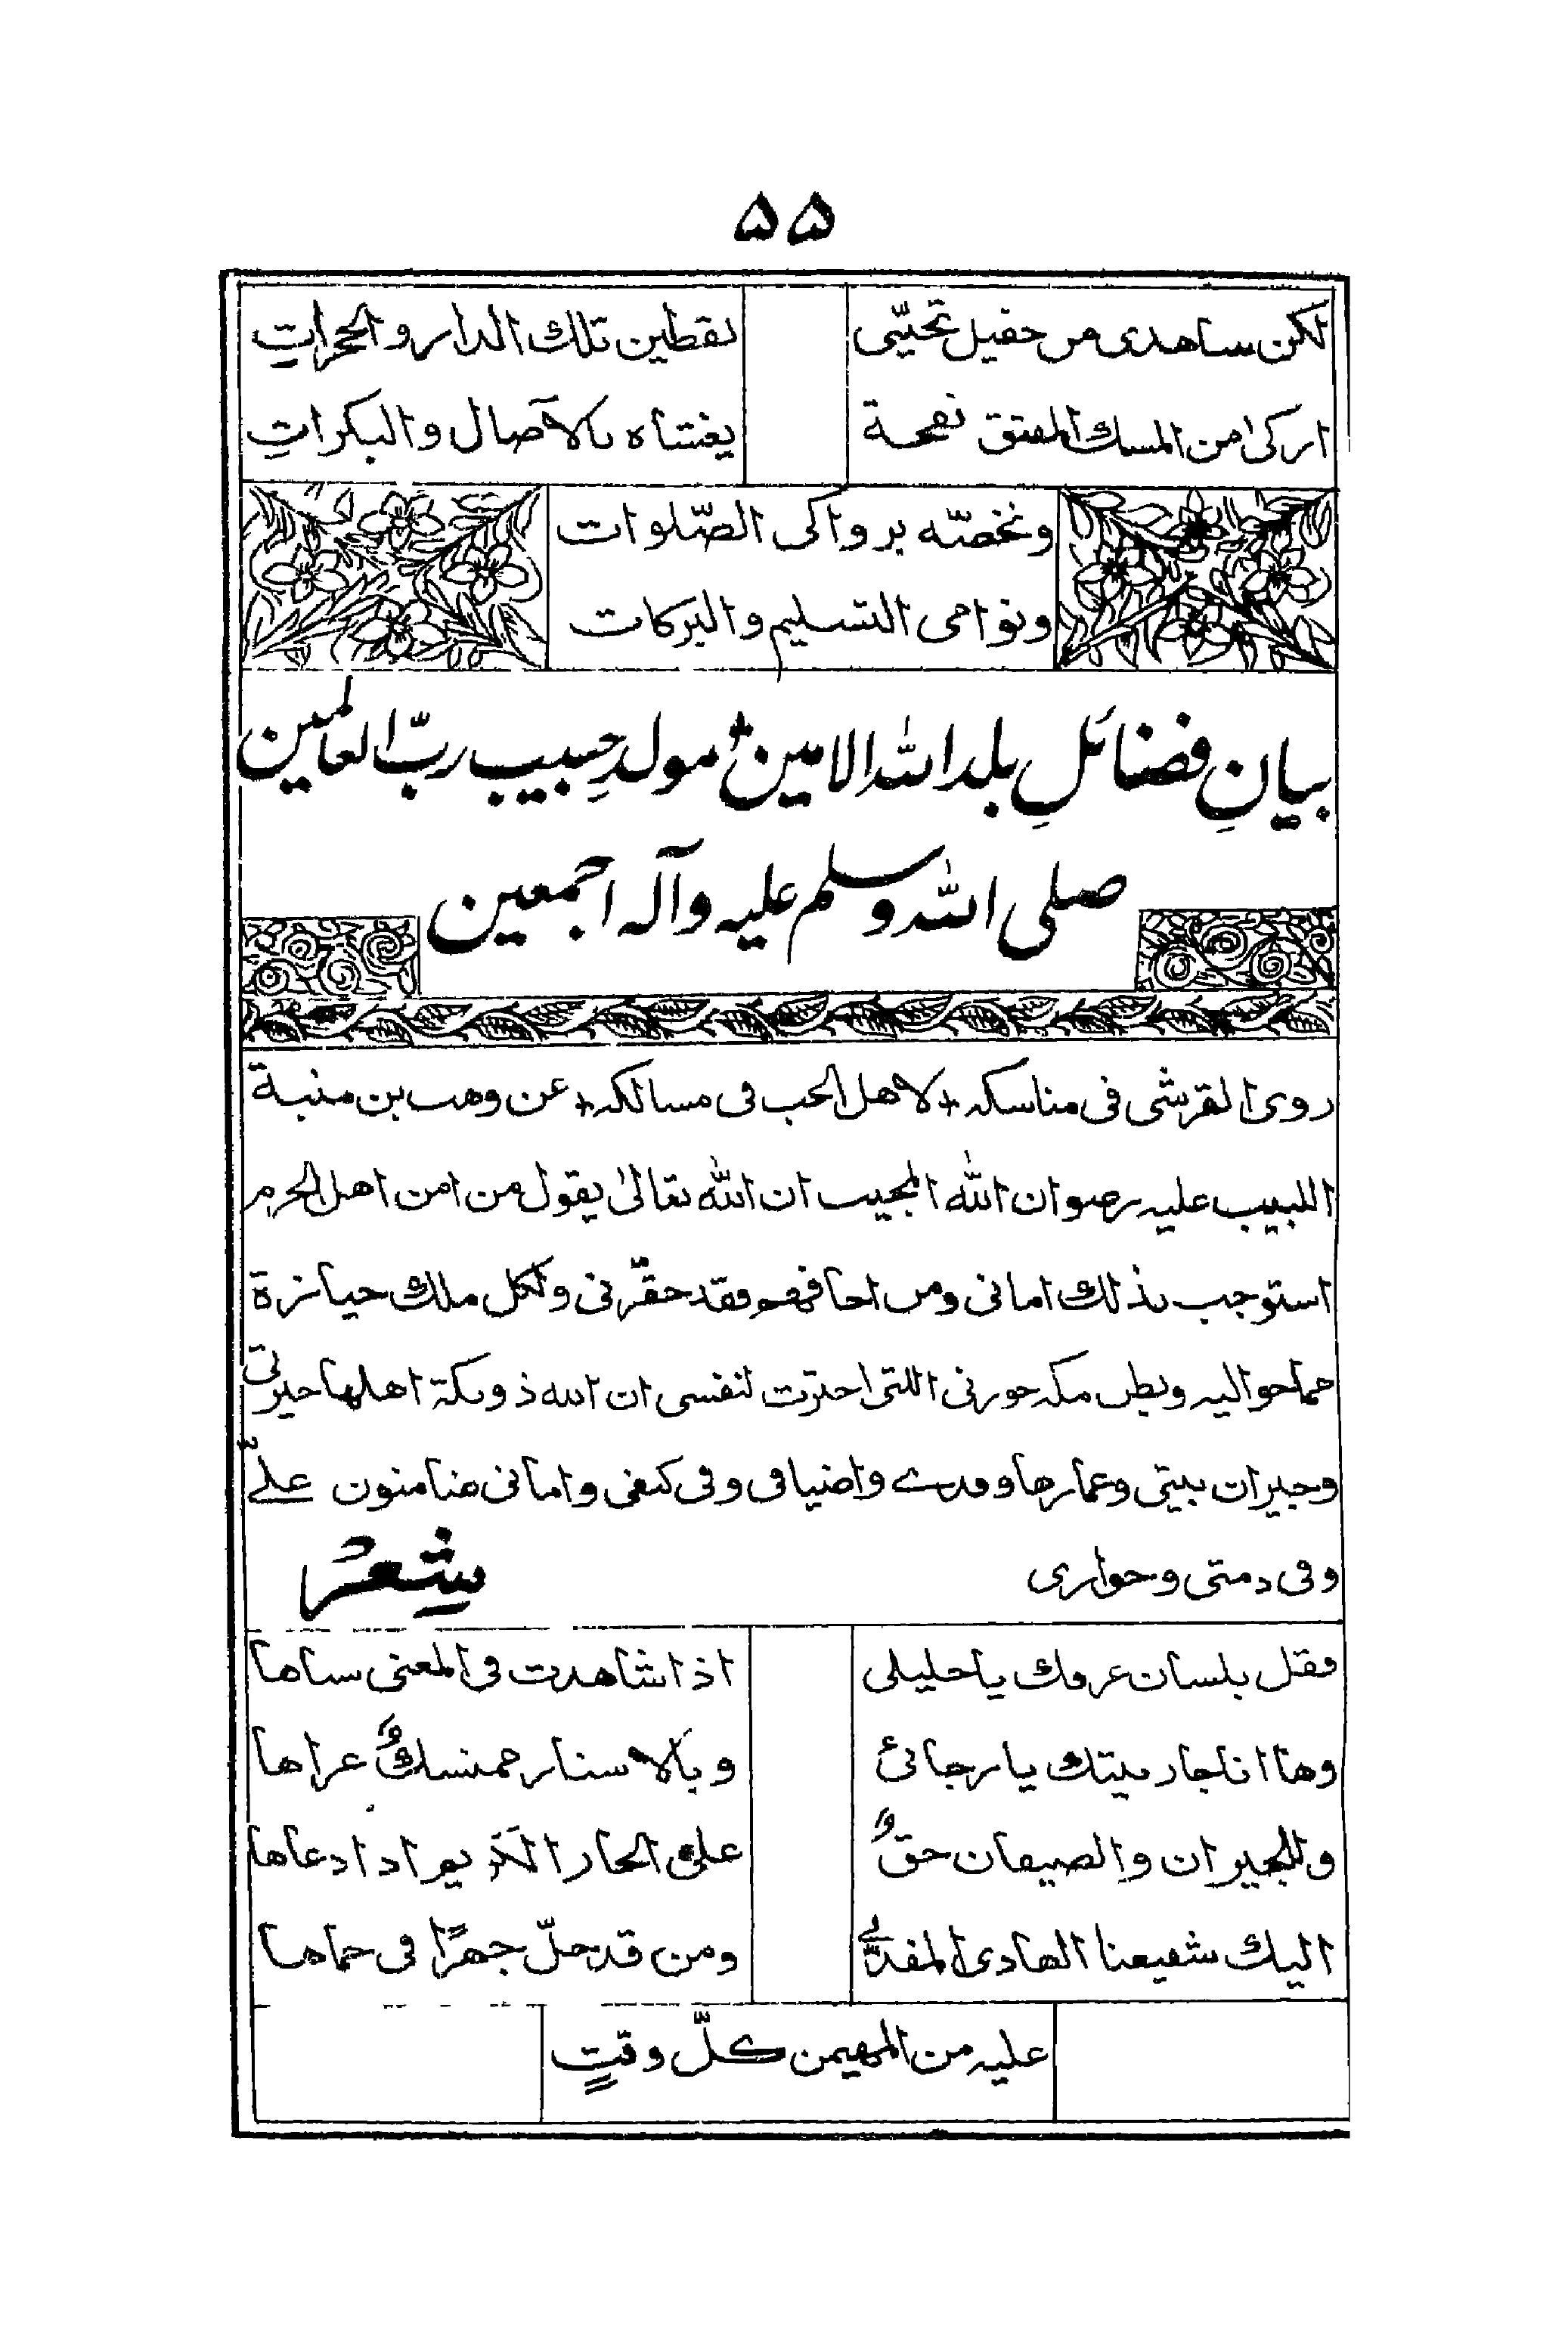 ۵۵
لكن ساهدى من حفيل تحيّتى لقطين تلك الدار والحجراتِ
ازكى من المسك المفتق نفحة يغشاه بالآصال والبكراتِ
ونخصّه بزواكى الصّلوات
ونوامى التسليم والبركات
بيانِ فضائلِ بلد الله الامين؛ مولدِ حبيب ربّ العالمين
صلى الله وسلم عليه وآله اجمعين
روى القرشى فى مناسكه + لاهل الحب فى مسالكه + عن وهب بن منبة
اللبيب عليه رضوان الله المجيب ان الله تعالىٰ يقول من امن اهل الحرم
استوجب بذلك امانى ومن اخافهم فقد حقّرنى ولكل ملك حيازة
مما حواليه وبطن مكه حوزنى اللتى احترت لنفسى ان الله ذوبكة اهلها جيرتى
وجيران بيتى وعمارها وفدے واضيافى وفى كنفى وامانى ضامنون علىّ
وفى ذمتى وجوارى شعرٌ
فقل بلسان عرفك يا خليلى اذا شاهدت فى المعنى سناها
وها انا جار بيتك يا رجائى وبالاستار ممسكٌ عراها
وللجيران والضيفان حقٌ على الجار الكريم اذا دعاها
اليك شفيعنا الهادى المفدّے ومن قد حلّ جهرًا فى حماها
عليه من المهيمن كلّ وقتٍ